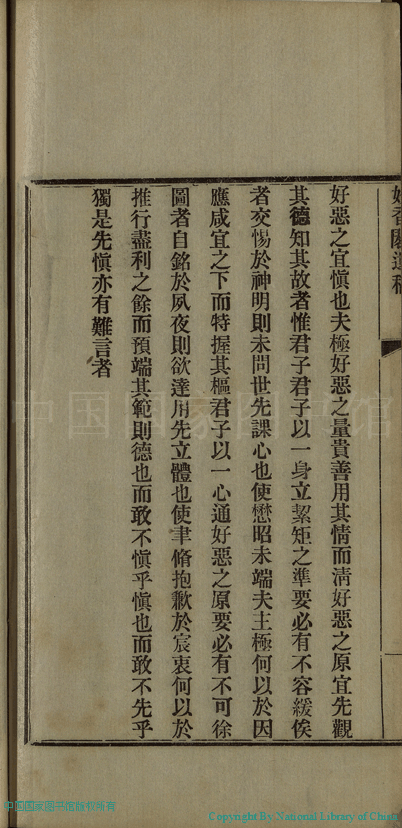 好惡之宜愼也夫極好惡之量貴善用其情而淸好惡之原宜先觀
其德知其故者惟君子君子以一身立絜矩之準要必有不容緩俟
者交惕於神明則未問世先課心也使懋昭未端夫主極何以於因
應咸宜之下而特握其樞君子以一心通好惡之原要必有不可徐
圖者自銘於夙夜則欲達用先立體也使聿脩抱歉於宸衷何以於
推行盡利之餘而預端其範則德也而敢不愼乎愼也而敢不先乎
獨是先愼亦有難言者
中国国家图书馆
中国国家图书馆版权所有
Copyright By National Library of Chin